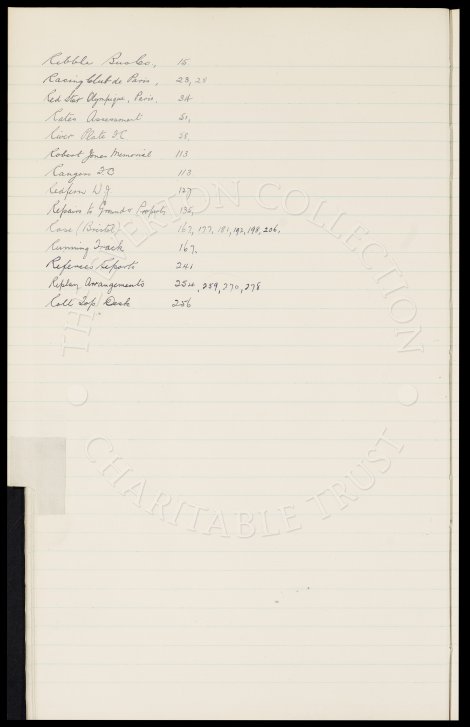 Ribble Bus Co. 15
Racing Club de Paris. 23, 28
Red Star Olympique, Paris. 34
Rates Assessment 51.
River Plate F.C 58
Robert Jones Memorial 113
Rangers F.C 113
Redfern W J 127
Repairs to Grounds & Property 132,
Rose (Bristol) 167, 177, 181, 192, 198, 206,
Running Track 167.
Referee's Reports 241
Replay Arrangements 254, 259, 270, 278
Roll Top Desk 256
THE EVERTON COLLECTION
CHARITABLE TRUST